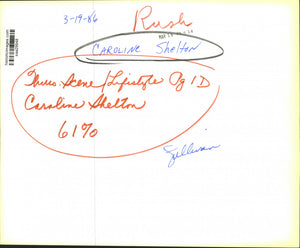 3-19-86
Rush
CAROLINE Shelton
Thurs. Scene/Lifestyle Pg 1D
Caroline Shelton
61%
Sullivan